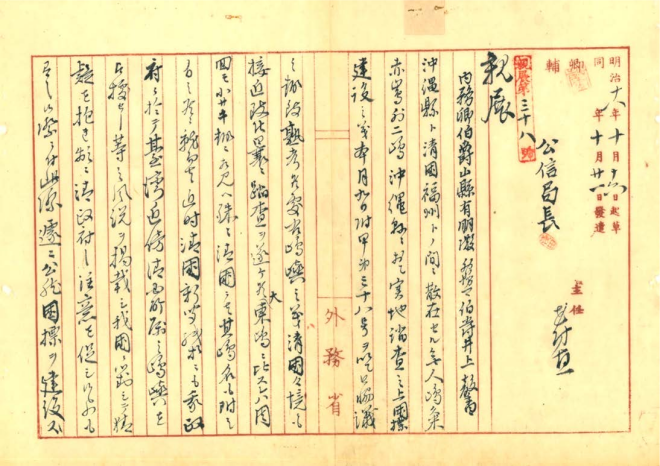 明治十八年十月十六日起草
同 年十月廿一日發遣
卿
輔
主任
公信局長
親展第三十八号
親展
内務卿伯爵山縣有朋殿 外務卿伯爵井上馨
沖縄縣ト清国福州トノ間ニ散在セル無人嶋久米
赤嶋外二嶋沖縄縣ニ於テ実地踏査之上国標
建設之義本月九日附甲第八十三号ヲ以テ御協議
之趣致熟考候處右嶋嶼之義ハ清国々境ニモ
接近致候曩ニ踏査ヲ遂ケ候大東嶋ニ比スレハ周
回モ小サキ趣ニ相見ヘ殊ニ清国ニハ其嶋名モ附シ
有之候ニ就テハ近時清国新聞紙等ニモ我政
府ニ於テ臺湾近傍清国所属之嶋嶼ヲ
占據セシ等之風説ヲ掲載シ我国ニ対シテ猜
疑ヲ抱キ頻ニ清政府之注意ヲ促シ候モノモ
有之候際ニ付此際遽ニ公然国標ヲ建設ス
外務省